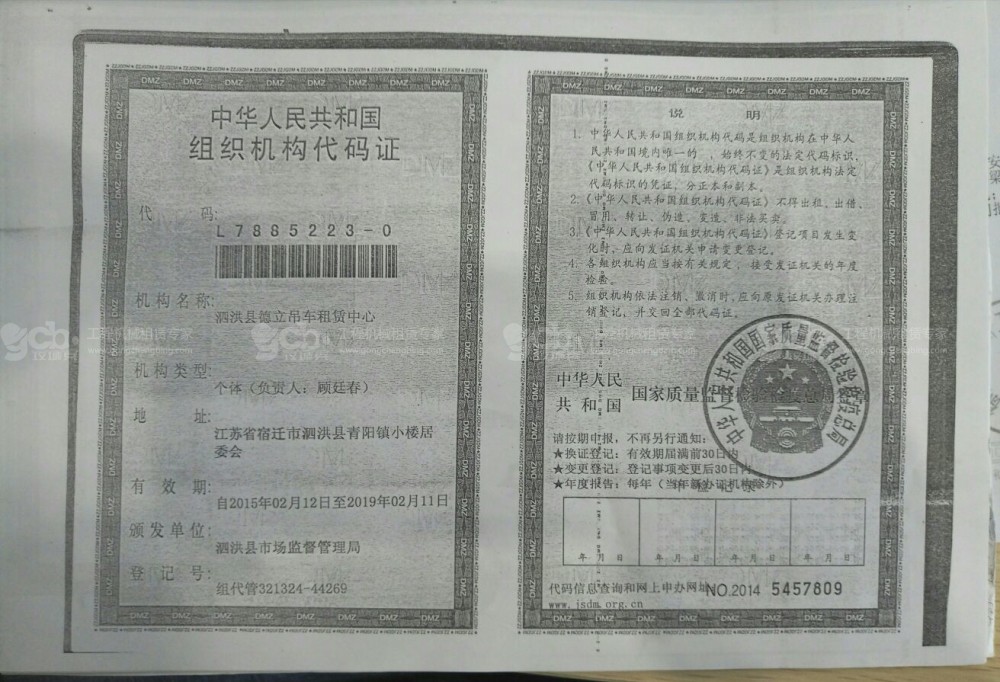 中华人民共和国
组织机构代码证
代 码:
L7885223-0
机构名称:
泗洪县德立吊车租赁中心
机构类型:
个体（负责人：顾廷春）
地 址:
江苏省宿迁市泗洪县青阳镇小楼居
委会
有 效 期:
自2015年02月12日至2019年02月11日
颁发单位:
泗洪县市场监督管理局
登 记 号:
组代管321324-44269
说 明
1. 中华人民共和国组织机构代码是组织机构在中华人
民共和国境内唯一的 ，始终不变的法定代码标识，
《中华人民共和国组织机构代码证》是组织机构法定
代码标识的凭证，分正本和副本。
2.《中华人民共和国组织机构代码证》不得出租、出借、
冒用、转让、伪造、变造、非法买卖。
3.《中华人民共和国组织机构代码证》登记项目发生变
化时，应向发证机关申请变更登记。
4. 各组织机构应当按有关规定 ，接受发证机关的年度
检验。
5. 组织机构依法注销、撤消时，应向原发证机关办理注
销登记，并交回全部代码证。
中华人民
共和国
国家质量监督
中华人民共和国国家质量监督检验检疫总局
请按期申报，不再另行通知:
★换证登记：有效期届满前30日内
★变更登记：登记事项变更后30日内
★年度报告：每年（当年新办证机构除外）
年 月 日 年 月 日 年 月 日 年 月 日
代码信息查询和网上申办网址
NO.2014 5457809
www.jsdm.org.cn